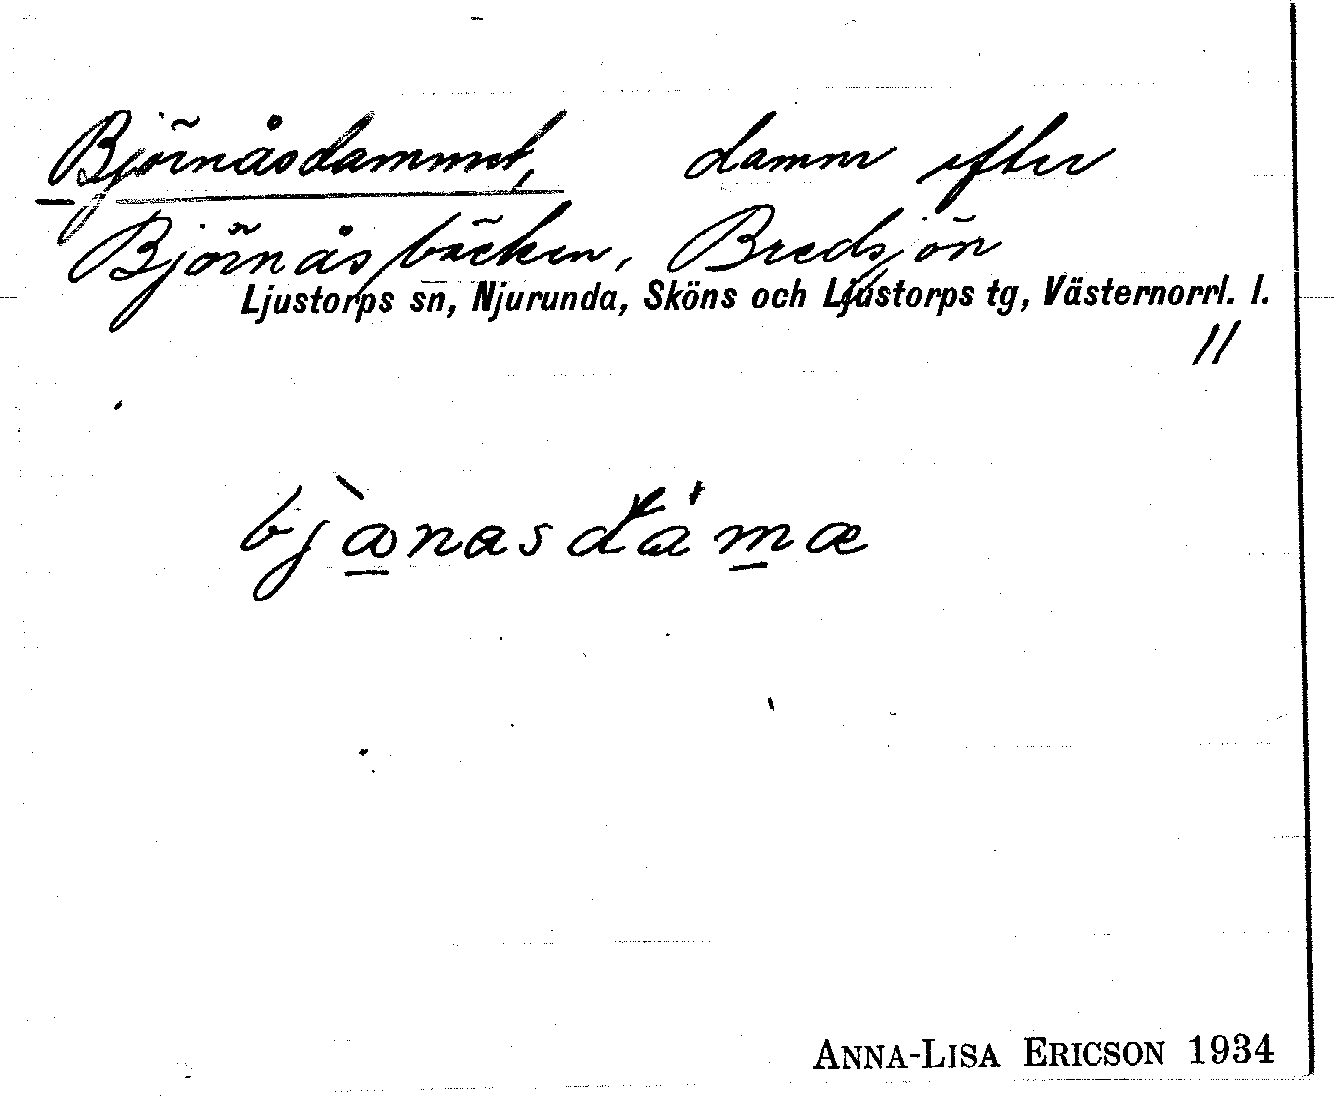 Björnåsdammet, damm efter
Björnåsbäcken, Bredsjön
Ljustorps sn, Njurunda, Sköns och Ljustorps tg, Västernorrl. l.
11
bjȁnasdáma
ANNA-LISA ERICSON 1934